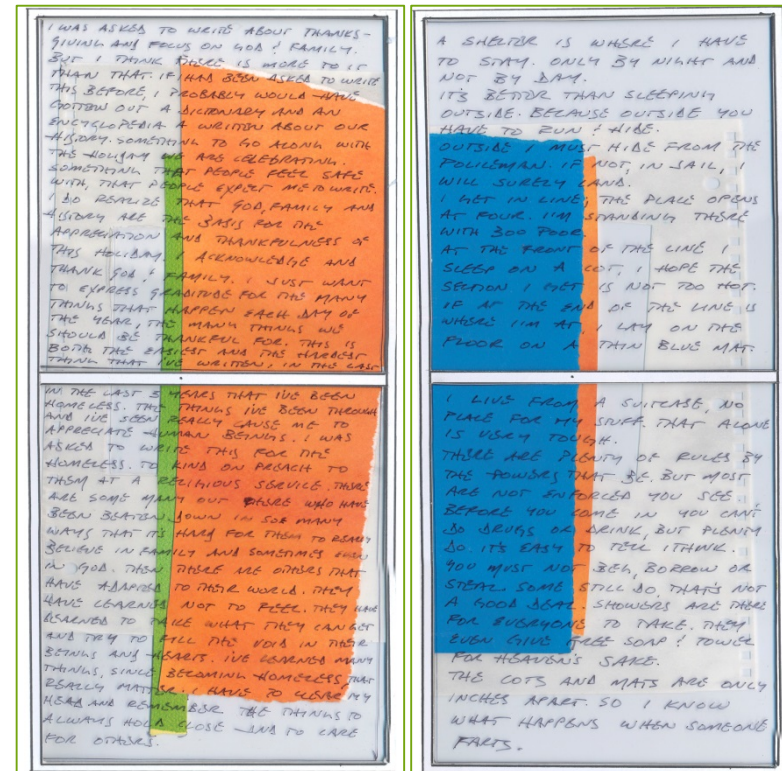 I WAS ASKED TO WRITE ABOUT THANKS-
GIVING AND FOCUS ON GOD & FAMILY.
BUT I THINK THERE IS MORE TO IT
THAN THAT. IF I HAD BEEN ASKED TO WRITE
THIS BEFORE, I PROBABLY WOULD HAVE
GOTTEN OUT A DICTIONARY AND AN
ENCYCLOPEDIA & WRITTEN ABOUT OUR
HISTORY. SOMETHING TO GO ALONG WITH
THE HOLIDAY WE ARE CELEBRATING.
SOMETHING THAT PEOPLE FEEL SAFE
WITH, THAT PEOPLE EXPECT ME TO WRITE.
I DO REALIZE THAT GOD, FAMILY AND
HISTORY ARE THE BASIS FOR THE
APPRECIATION AND THANKFULNESS OF
THIS HOLIDAY. I ACKNOWLEDGE AND
THANK GOD & FAMILY. I JUST WANT
TO EXPRESS GRADITUDE FOR THE MANY
THINGS THAT HAPPEN EACH DAY OF
THE YEAR, THE MANY THINGS WE
SHOULD BE THANKFUL FOR. THIS IS
BOTH THE EASIEST AND THE HARDEST
THING THAT I'VE WRITTEN, IN THE LAST
IN THE LAST 3 YEARS THAT I'VE BEEN
HOMELESS. THE THINGS I'VE BEEN THROUGH
AND I'VE SEEN REALLY CAUSE ME TO
APPRECIATE HUMAN BEINGS. I WAS
ASKED TO WRITE THIS FOR THE
HOMELESS. TO KIND ON PREACH TO
THEM AT A RELIGIOUS SERVICE. THERE
ARE SOME MANY OUT THERE WHO HAVE
BEEN BEATEN DOWN IN SOE MANY
WAYS THAT IT'S HARD FOR THEM TO REALLY
BELIEVE IN FAMILY AND SOMETIMES EVEN
IN GOD. THEN THERE ARE OTHERS THAT
HAVE ADAPTED TO THEIR WORLD. THEY
HAVE LEARNED NOT TO FEEL. THEY HAVE
LEARNED TO TAKE WHAT THEY CAN GET
AND TRY TO FILL THE VOID IN THEIR
BEINGS AND HEARTS. I'VE LEARNED MANY
THINGS, SINCE BECOMING HOMELESS THAT
REALLY MATTER. I HAVE TO CLEAR MY
HEAD AND REMEMBER THE THINGS TO
ALWAYS HOLD CLOSE AND TO CARE
FOR OTHERS.
A SHELTER IS WHERE I HAVE
TO STAY. ONLY BY NIGHT AND
NOT BY DAY.
IT'S BETTER THAN SLEEPING
OUTSIDE. BECAUSE OUTSIDE YOU
HAVE TO RUN & HIDE.
OUTSIDE I MUST HIDE FROM THE
POLICEMAN. IF NOT, IN JAIL, I
WILL SURELY LAND.
I GET IN LINE, THE PLACE OPENS
AT FOUR. I'M STANDING THERE
WITH 300 POOR.
AT THE FRONT OF THE LINE I
SLEEP ON A COT, I HOPE THE
SECTION I GET IS NOT TOO HOT.
IF AT THE END OF THE LINE IS
WHERE I'M AT, I LAY ON THE
FLOOR ON A THIN BLUE MAT.
I LIVE FROM A SUITCASE, NO
PLACE FOR MY STUFF. THAT ALONE
IS VERY TOUGH.
THERE ARE PLENTY OF RULES BY
THE POWERS THAT BE. BUT MOST
ARE NOT ENFORCED YOU SEE
BEFORE YOU COME IN YOU CAN'T
DO DRUGS OR DRINK, BUT PLENTY
DO. IT'S EASY TO TELL I THINK.
YOU MUST NOT BEG, BORROW OR
STEAL. SOME STILL DO, THAT'S NOT
A GOOD DEAL. SHOWERS ARE THERE
FOR EVERYONE TO TAKE. THEY
EVEN GIVE FREE SOAP & TOWEL
FOR HEAVEN'S SAKE.
THE COTS AND MATS ARE ONLY
INCHES APART. SO I KNOW
WHAT HAPPENS WHEN SOMEONE
FARTS.